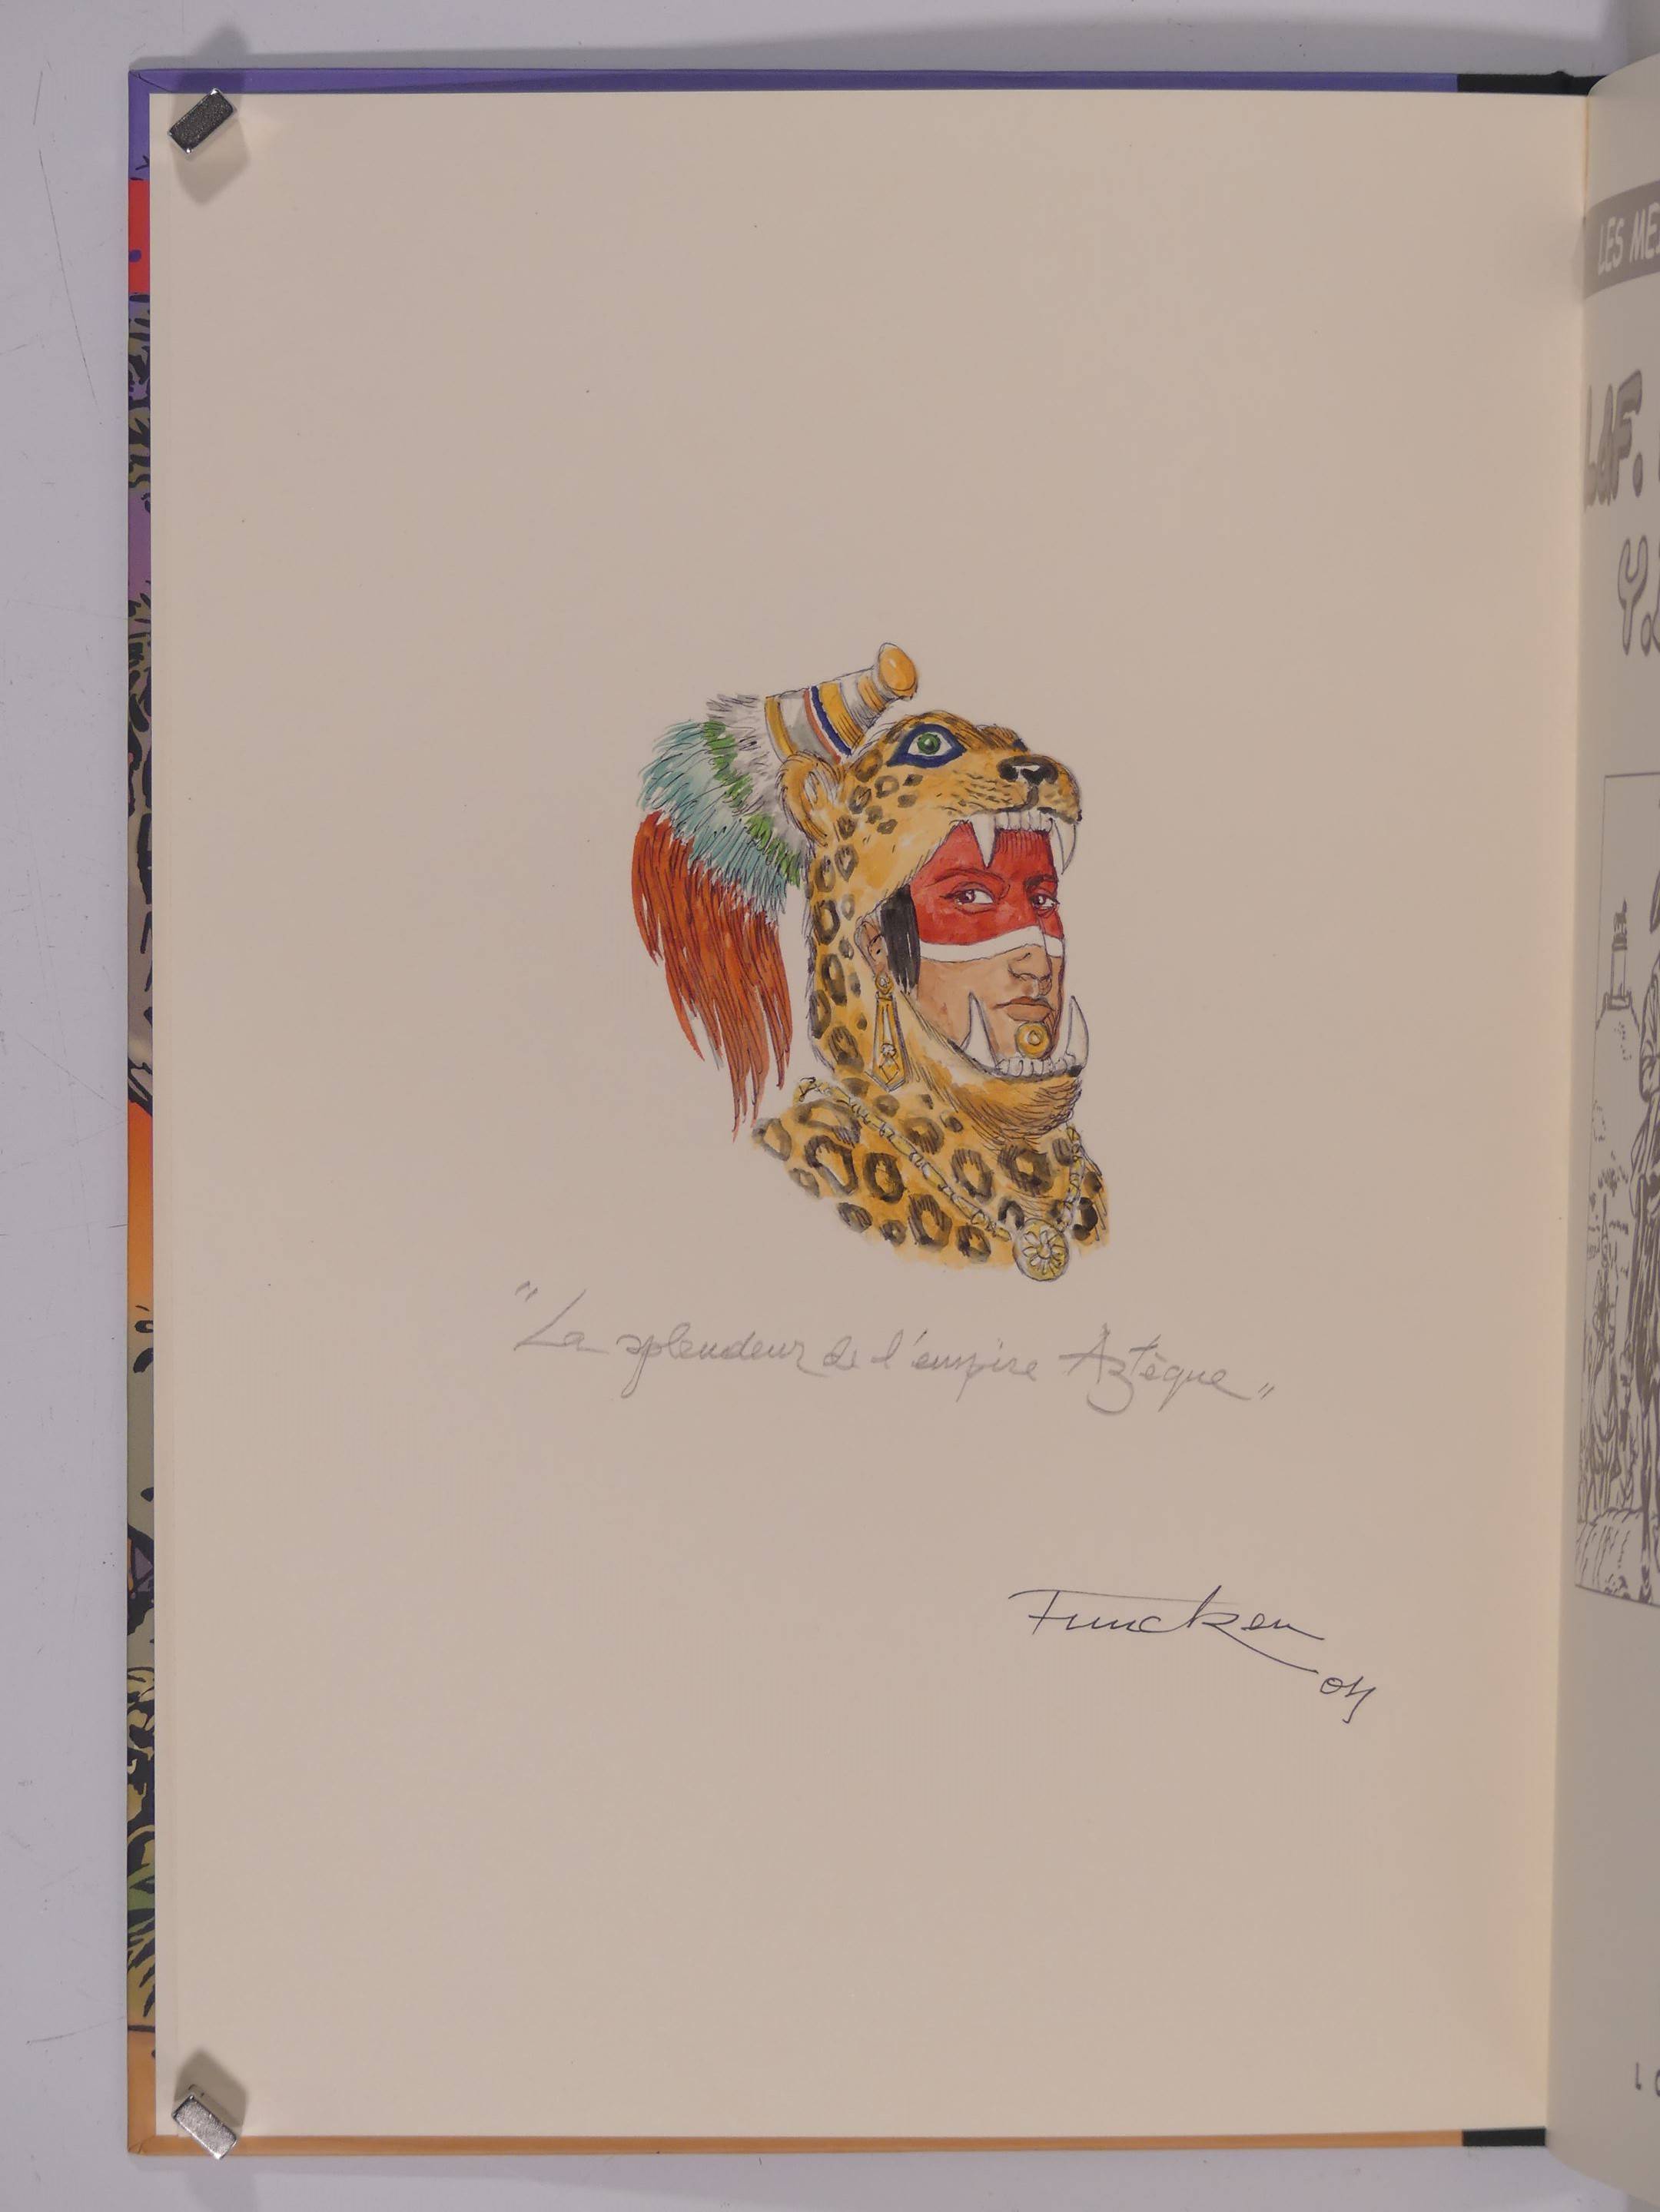 "La splendeur de l'empire Aztèque"
Funcken
04
LES ME
L&F.
Y.